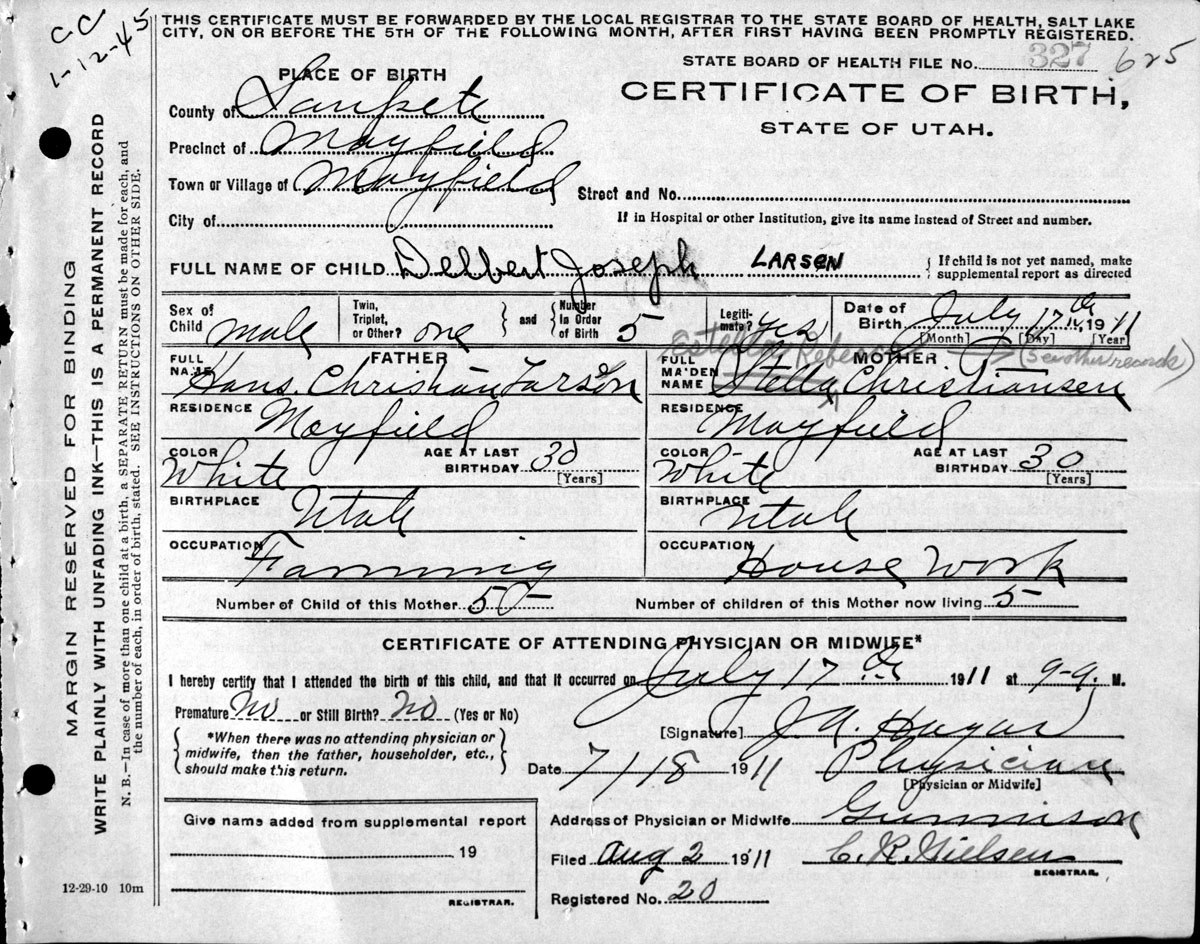 CC
1-12-45
THIS CERTIFICATE MUST BE FORWARDED BY THE LOCAL REGISTRAR TO THE STATE BOARD OF HEALTH, SALT LAKE
CITY, ON OR BEFORE THE 5TH OF THE FOLLOWING MONTH, AFTER FIRST HAVING BEEN PROMPTLY REGISTERED.
STATE BOARD OF HEALTH FILE NO. 327 625
PLACE OF BIRTH
CERTIFICATE OF BIRTH,
STATE OF UTAH.
County of Sanpete
Precinct of Mayfield
Town or Village of Mayfield Street and No.
City of If in Hospital or other Institution, give its name instead of Street and number.
FULL NAME OF CHILD Delbert Joseph LARSEN { If child is not yet named, make
supplemental report as directed
Sex of Child male Twin, Triplet, or Other? one } and { Number in Order of Birth 5 Legiti- mate? Yes Date of Birth July 17th 1911
[Month] [Day] [Year]
Estella Rebecca (See other records)
FULL NAME FATHER Hans. Christian Larson
FULL MAIDEN NAME MOTHER Stella Christiansen
RESIDENCE Mayfield RESIDENCE Mayfield
COLOR White AGE AT LAST BIRTHDAY 30 [Years] COLOR White AGE AT LAST BIRTHDAY 30 [Years]
BIRTHPLACE Utah BIRTHPLACE Utah
OCCUPATION Farming OCCUPATION House Work
Number of Child of this Mother 5 Number of children of this Mother now living 5
CERTIFICATE OF ATTENDING PHYSICIAN OR MIDWIFE*
I hereby certify that I attended the birth of this child, and that it occurred on July 17th 1911 at 9-a. M.
Premature No or Still Birth? No (Yes or No)
{ *When there was no attending physician or
midwife, then the father, householder, etc.,
should make this return. }
[Signature] J. A. Hagan
Date 7/18 1911 Physician
[Physician or Midwife]
Give name added from supplemental report
19
REGISTRAR.
Address of Physician or Midwife Gunnison
Filed Aug 2 1911 C. R. Nielsen
REGISTRAR.
Registered No. 20
12-29-10 10m
MARGIN RESERVED FOR BINDING
WRITE PLAINLY WITH UNFADING INK—THIS IS A PERMANENT RECORD
N. B.—In case of more than one child at a birth, a SEPARATE RETURN must be made for each, and
the number of each, in order of birth, stated. SEE INSTRUCTIONS ON OTHER SIDE.